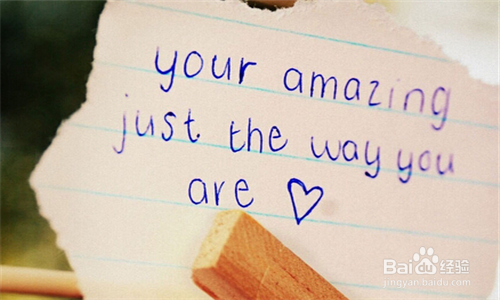 your amazing
just the way you
are ♡
Baidu经验
jingyan.baidu.com